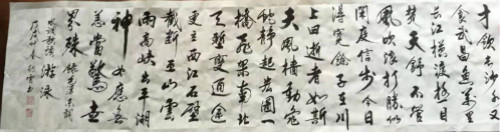 才飲长沙水又
食武昌魚万里
长江横渡极目
楚天舒不管
风吹浪打胜似
闲庭信步今日
得宽馀子在川
上曰逝者如斯
夫风樯动龟
蛇静起宏图一
橋飛架南北
天堑变通途
更立西江石壁
截断巫山云
雨高峡出平湖
神女应无
恙当惊世
界殊
水调歌头游泳